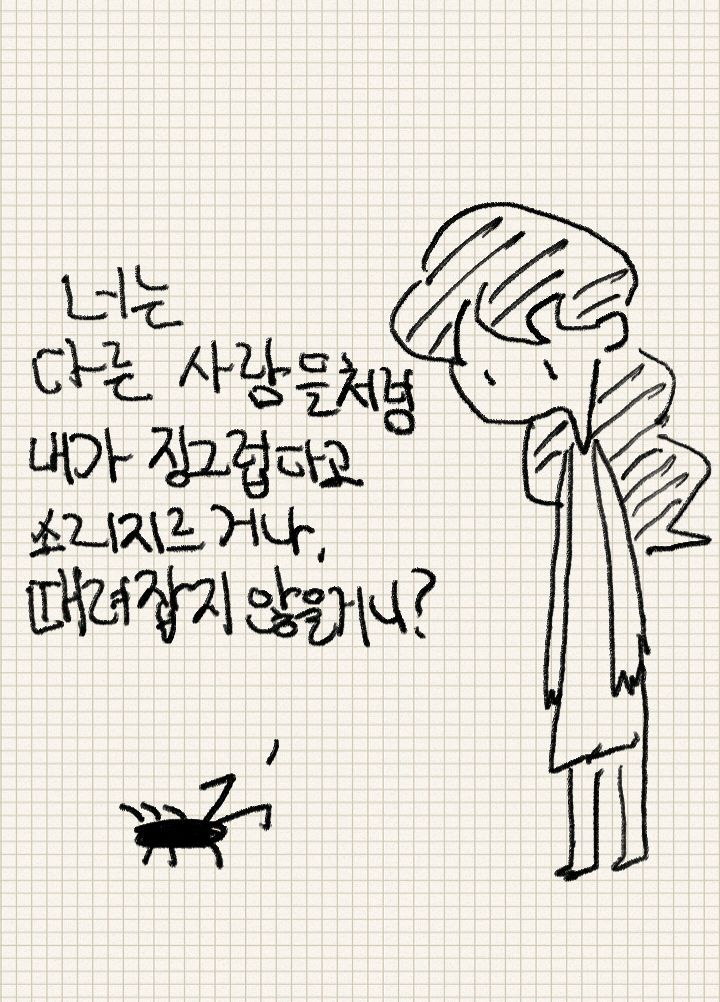 너는
다른 사람들처럼
내가 징그럽다고
소리지르거나,
때려잡지 않을거니?